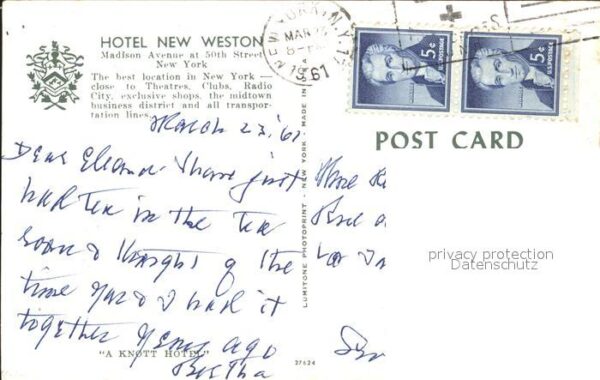 HOTEL NEW WESTON
Madison Avenue at 50th Street
New York
The best location in New York —
close to Theatres, Clubs, Radio
City, exclusive shops, the midtown
business district and all transpor-
tation lines.
NEW YORK, N.Y.
MAR
1961
5¢
U.S. POSTAGE
5¢
U.S. POSTAGE
POST CARD
March 23, '61
Dear Eleanor - I have just
had tea in the tea
room & thought of the
time you & I had it
together years ago
Bertha
"A KNOTT HOTEL"
27624
LUMITONE PHOTOPRINT - NEW YORK - MADE IN
privacy protection
Datenschutz